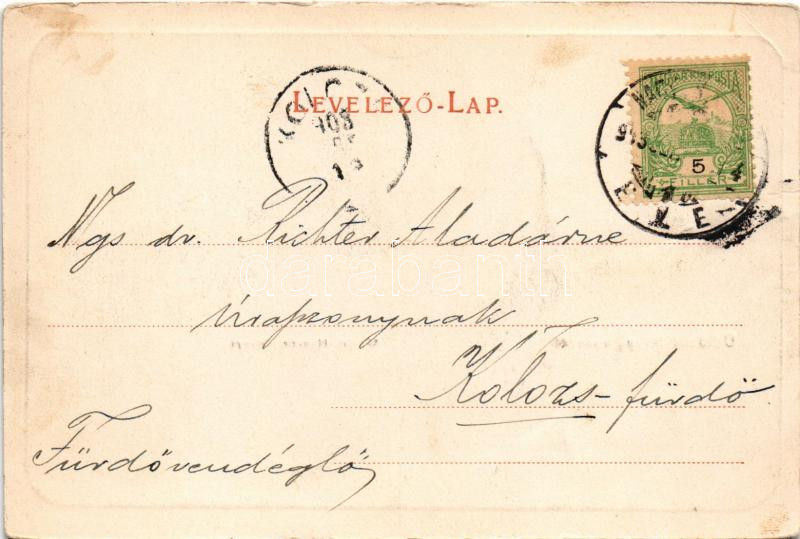 LEVELEZŐ-LAP.
MAGYAR KIR. POSTA
5
FILLÉR
Ngs dr. Richter Aladárne
úrasszonynak
Kolozs-fürdő
Fürdővendéglő
darabanth